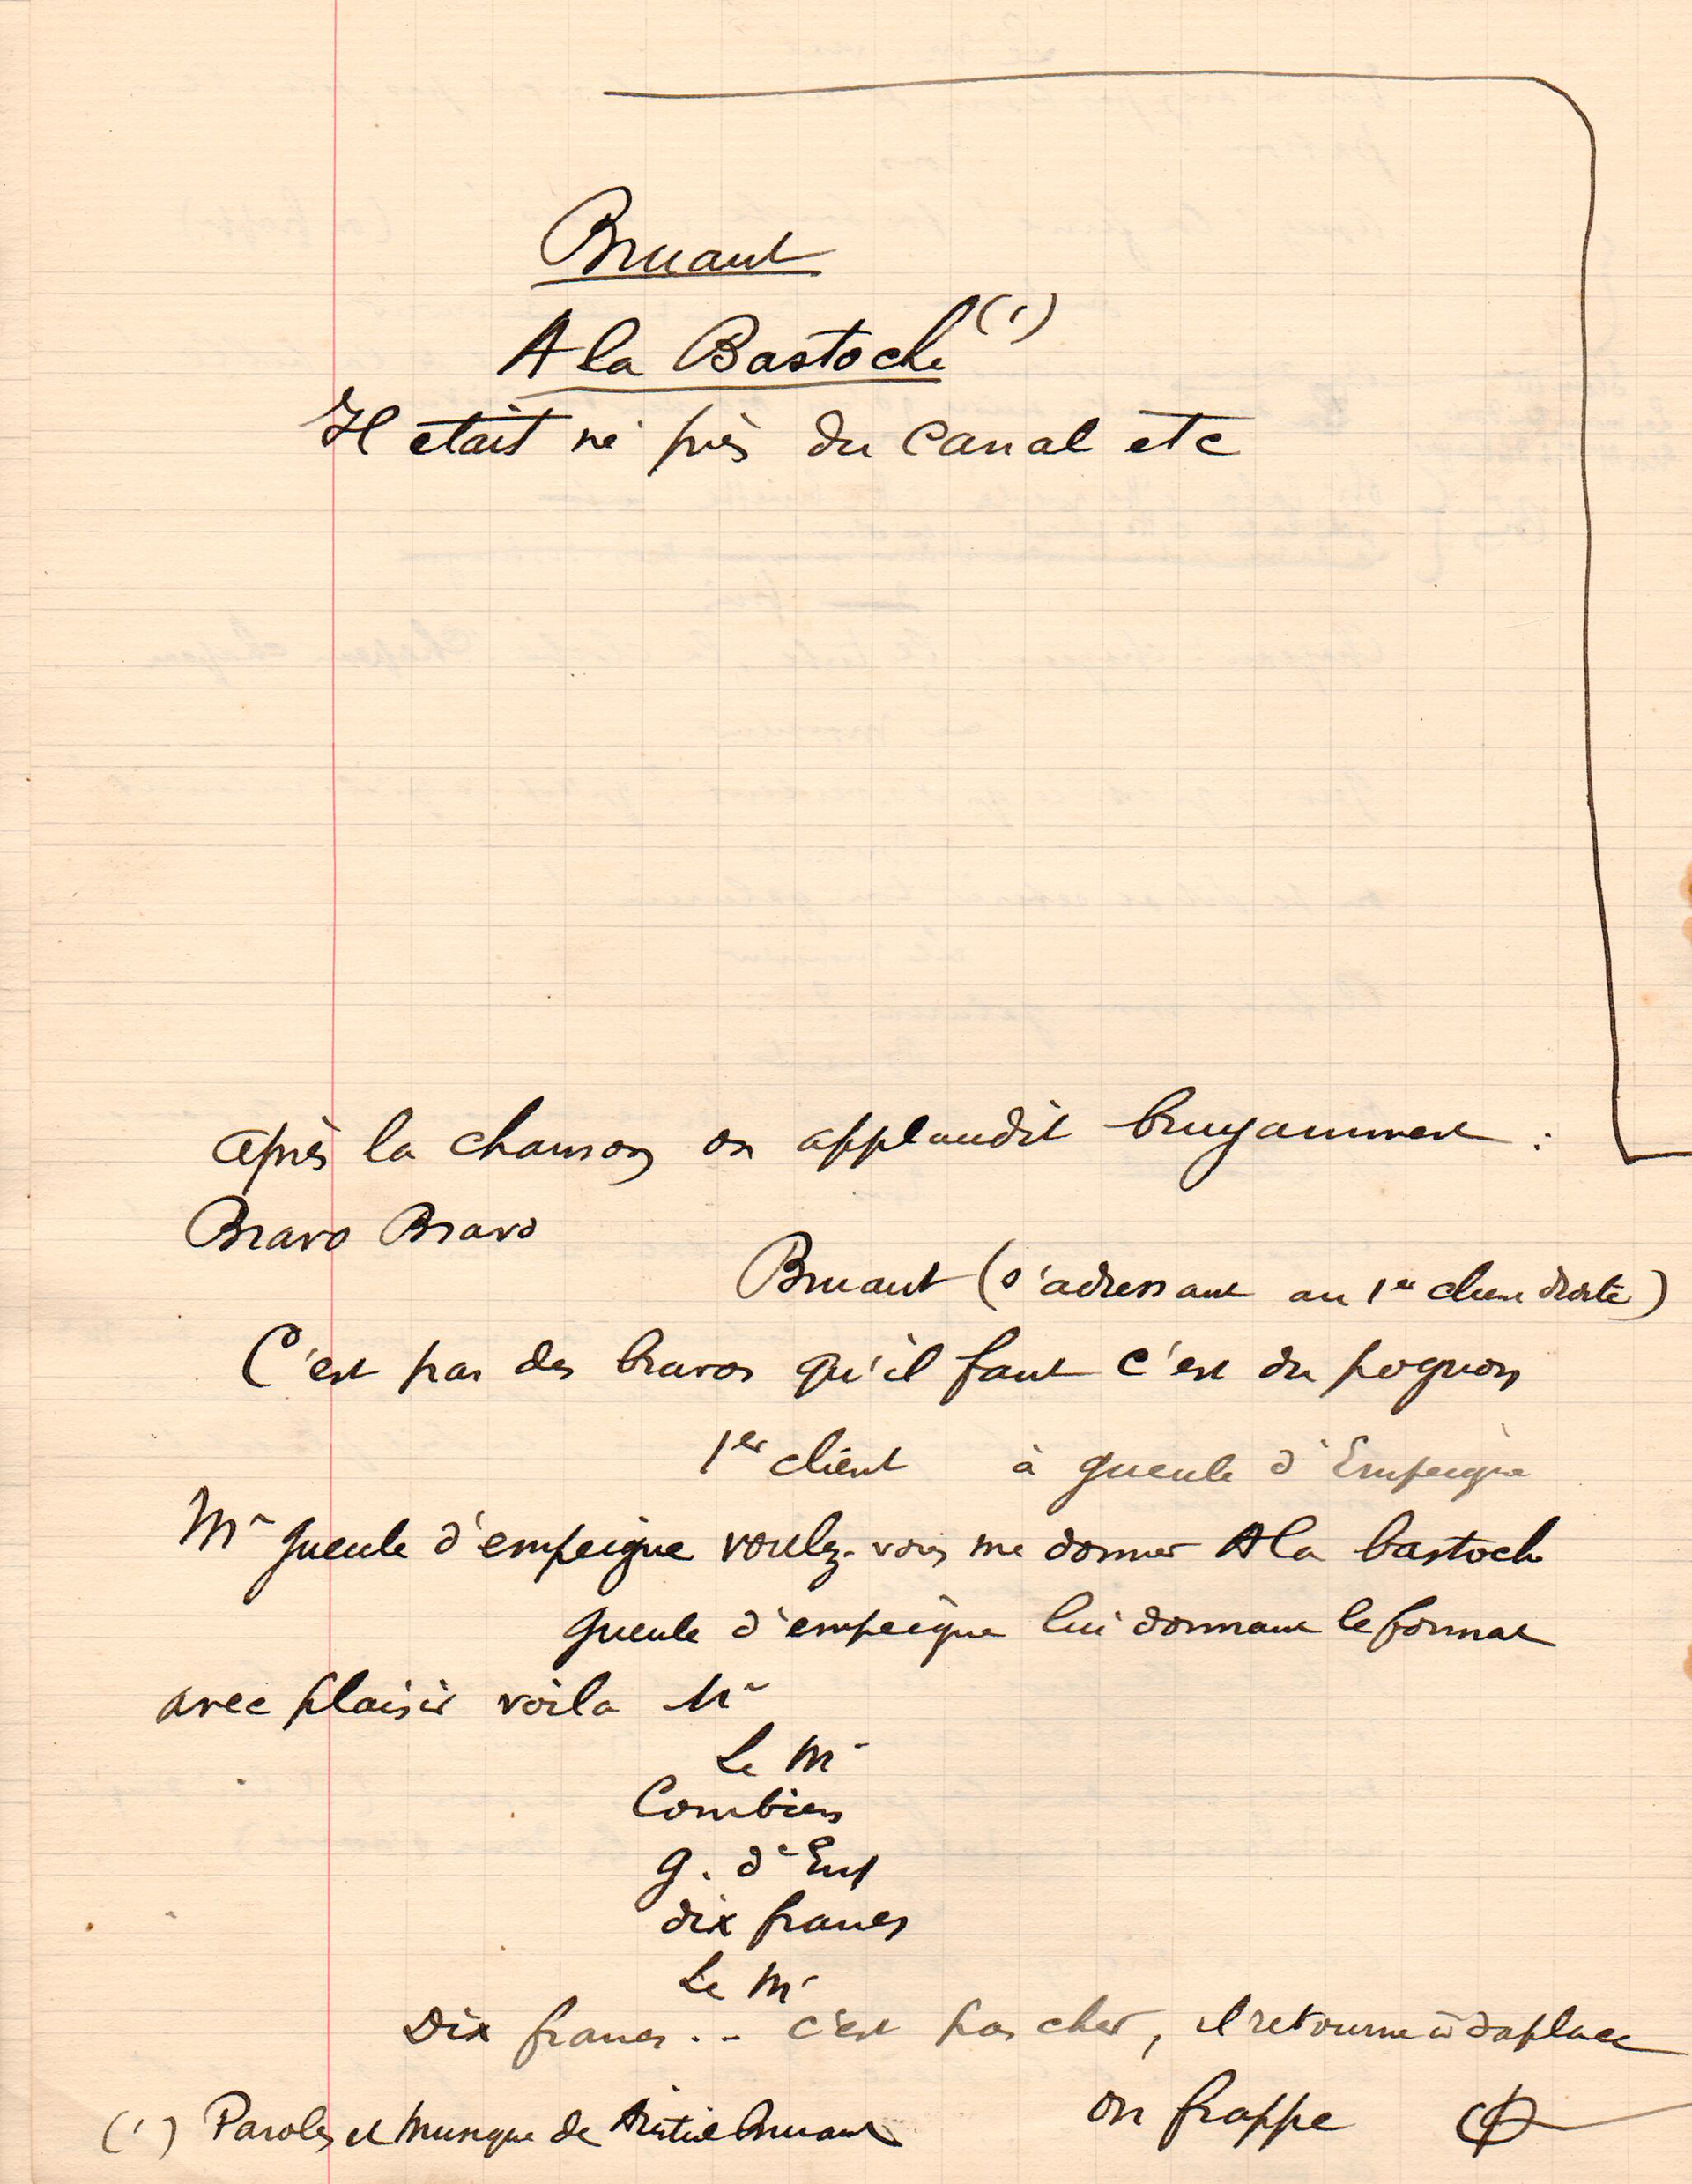 Bruant
A la Bastoche (1)
Il était né près du canal etc
après la chanson on applaudit bruyamment :
Bravo Bravo
Bruant (s'adressant au 1er client droite)
C'est pas des bravos qu'il faut c'est du pognon
1er client à gueule d'Empeigne
Mr gueule d'empeigne voulez-vous me donner A la bastoche
gueule d'empeigne lui donnant le format
avec plaisir voila Mr
Le Mr
Combien
g. d'Emp
dix francs
Le Mr
Dix francs .. c'est pas cher, il retourne à sa place
on frappe
(1) Paroles et Musique de Aristide Bruant